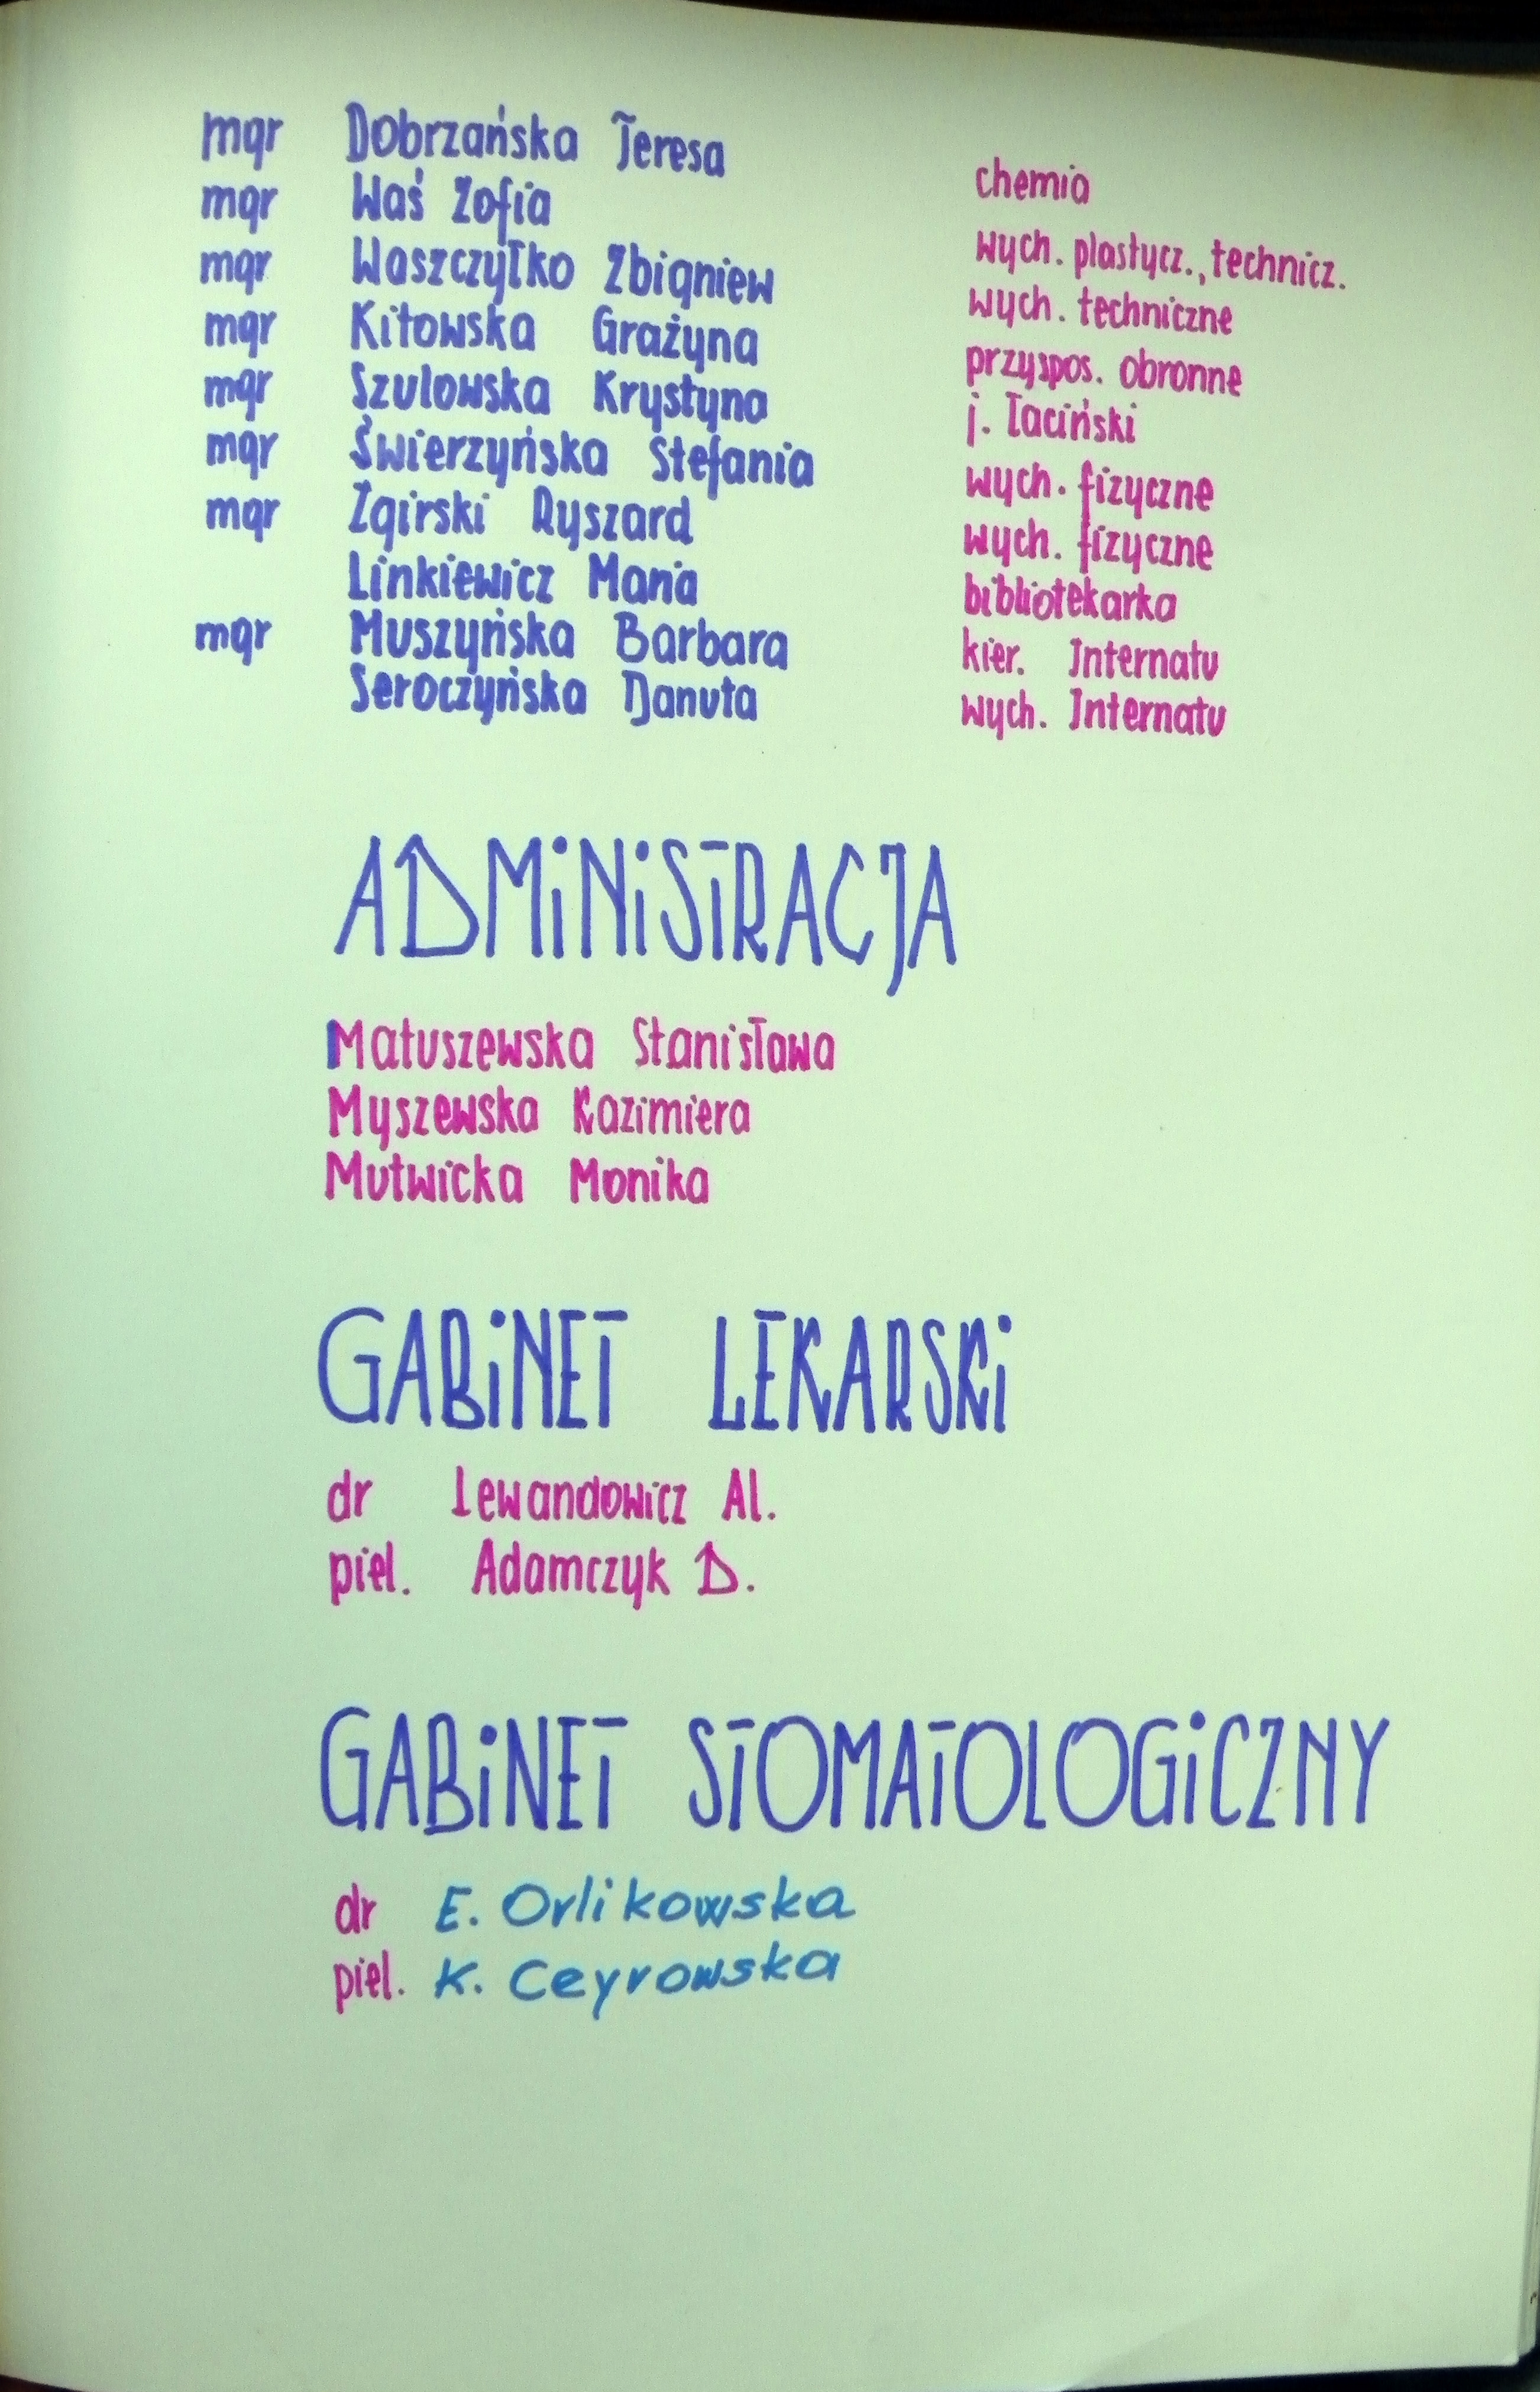 mgr Dobrzańska Teresa chemia
mgr Waś Zofia wych. plastycz., technicz.
mgr Waszczyłko Zbigniew wych. techniczne
mgr Kitowska Grażyna przyspos. obronne
mgr Szulowska Krystyna j. łaciński
mgr Świerzyńska Stefania wych. fizyczne
mgr Zgirski Ryszard wych. fizyczne
Linkiewicz Maria bibliotekarka
mgr Muszyńska Barbara kier. Internatu
Seroczyńska Danuta wych. Internatu
ADMiNiSTRACJA
Matuszewska Stanisława
Myszewska Kazimiera
Mutwicka Monika
GABiNET LEKARSKi
dr Lewandowicz Al.
piel. Adamczyk D.
GABiNET STOMATOLOGiCZNY
dr E. Orlikowska
piel. K. Ceyrowska